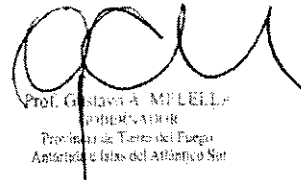 Prof. Gustavo A. MELELLA
GOBERNADOR
Provincia de Tierra del Fuego
Antártida e Islas del Atlántico Sur